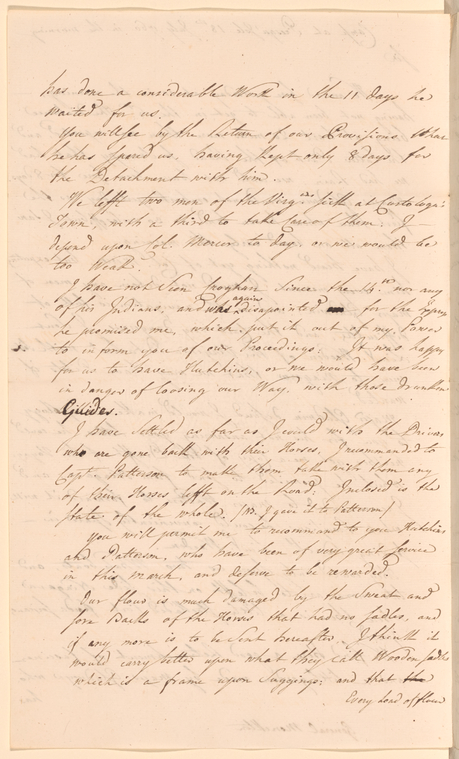 has done a considerable Work in the 11 days he
waited for us.
You will see by the Return of our Provisions, what
he has spared us, having kept only 8 days for
the Detachment with him.
We lefft two men of the Virg. sick at Custologa's
Town, with a third to take Care of them. I
depend upon Col: Mercer to day, or we would be
too Weak.
I have not Seen Croghan Since the 4th nor any
of his Indians, and was again disapointed for the
he promised me, which put it out of my Power
to inform you of our Proceedings: It was happy
for us to have Hutchins, or we would have been
in danger of loosing our Way, with those Drunken
Guides.
I have Settled as far as I could with the Drivers
who are gone back with their Horses, I recommanded to
Capt. Patterson to make them take with them any
of their Horses lefft on the Road: Inclosed is the
State of the whole. (NB. I gave it to Patterson)
You will permit me to recommand to you Hutchins
and Patterson, who have been of very great Service
in this march, and deserve to be rewarded.
Our flour is much damaged by the Sweat and
sore Backs of the Horses that had no Sadles, and
if any more is to be Sent hereafter, I think it
would carry better upon what they call Wooden Sadles
which is a frame upon Suggings; and that the
Every Load of flour